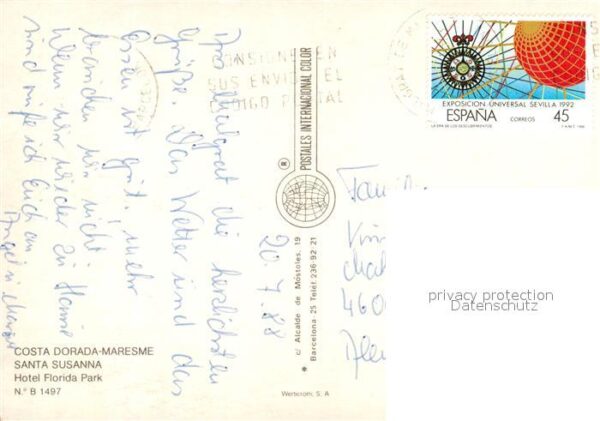 CONSIGNE EN
SUS ENVIOS EL
CODIGO POSTAL
EXPOSICION UNIVERSAL SEVILLA 1992
ESPAÑA
CORREOS
45
LA ERA DE LOS DESCUBRIMIENTOS
die herzlichsten
Grüße. Das Wetter und das
Essen ist gut, mehr
brauchen wir nicht.
Wenn wir wieder zu Hause
sind rufe ich Euch an
20.7.88
POSTALES INTERNACIONAL COLOR
®
c/ Alcalde de Móstoles, 19
Barcelona 25 Teléf. 236 92 21
460
privacy protection
Datenschutz
COSTA DORADA-MARESME
SANTA SUSANNA
Hotel Florida Park
N.º B 1497
Werticrom, S. A